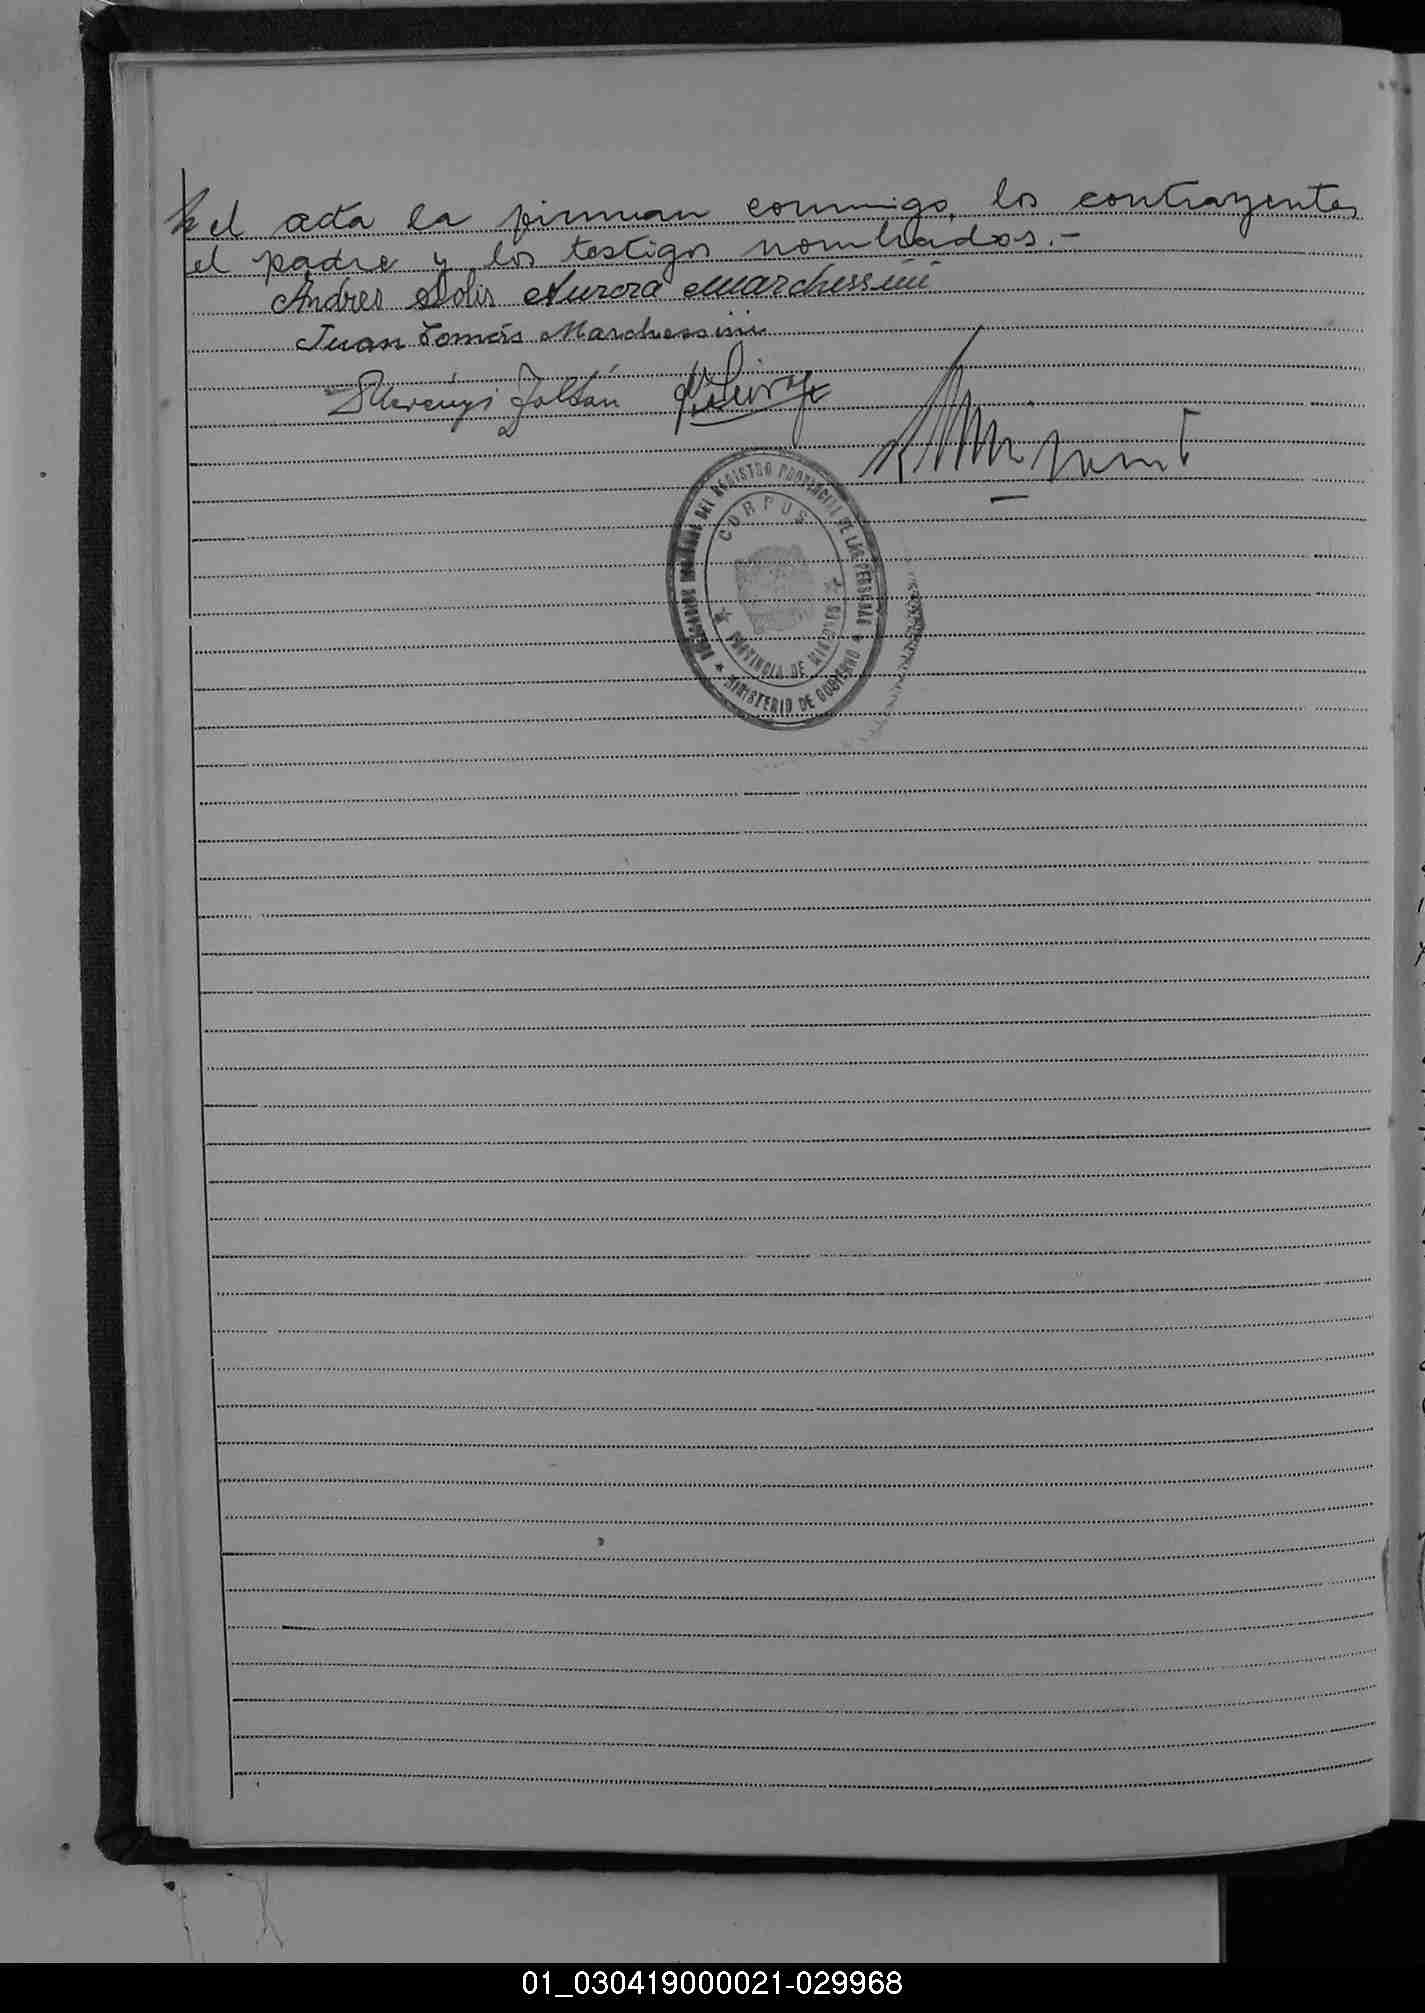 el acta la firman conmigo, los contrayentes
el padre y los testigos nombrados.-
Andres Solis Aurora Marchessini
Juan Tomás Marchessini
Zoltán
DIRECCION GENERAL DEL REGISTRO PROVINCIAL DE LAS PERSONAS
CORPUS
PROVINCIA DE MISIONES
MINISTERIO DE GOBIERNO
01_030419000021-029968